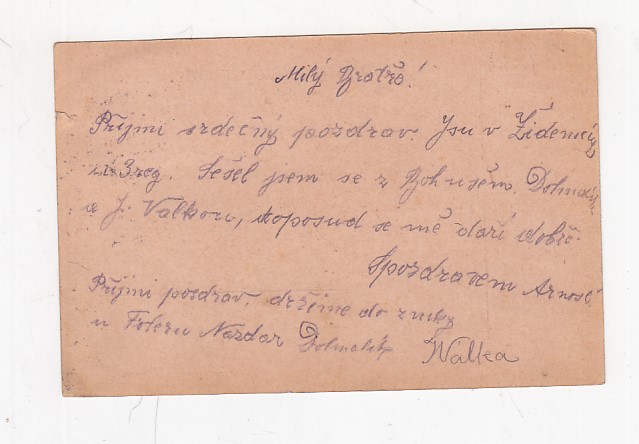 Milý Bratře!
Přijmi srdečný pozdrav. Jsu v Židenicích
u 3 reg. Sešel jsem se z Bohušem Dohnálk
a J. Valkou, doposud se mě daří dobře.
Spozdravem Arnošt
Přijmi pozdrav, držíme do
u Nazdar Dohnálek Válka